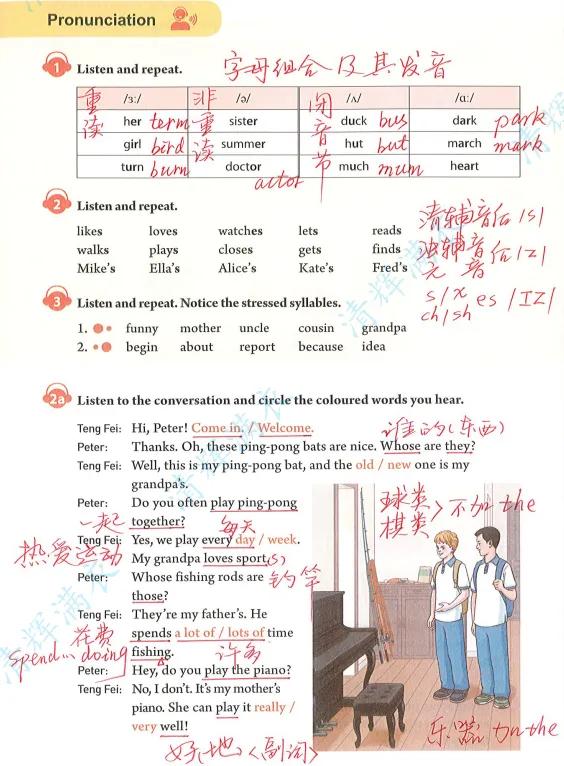 Pronunciation
1 Listen and repeat. 字母组合及其发音
重读 /ɜː/ 非重读 /ə/ 闭音节 /ʌ/ /ɑː/
her term sister duck bus dark park
girl bird summer hut but march mark
turn burn doctor actor much mum heart
2 Listen and repeat.
清辅音后/s/
likes loves watches lets reads
浊辅音后/z/
元音
walks plays closes gets finds
Mike's Ella's Alice's Kate's Fred's
s/x ch/sh es /IZ/
3 Listen and repeat. Notice the stressed syllables.
1. funny mother uncle cousin grandpa
2. begin about report because idea
2a Listen to the conversation and circle the coloured words you hear.
Teng Fei: Hi, Peter! Come in. / Welcome. 谁的(东西)
Peter: Thanks. Oh, these ping-pong bats are nice. Whose are they?
Teng Fei: Well, this is my ping-pong bat, and the old / new one is my
grandpa's.
Peter: Do you often play ping-pong
球类 棋类 > 不加 the
一起 together? 每天
Teng Fei: Yes, we play every day / week.
热爱运动 My grandpa loves sport.(s)
Peter: Whose fishing rods are 钓竿
those?
Teng Fei: They're my father's. He
花费 spends a lot of / lots of time
spend... doing fishing. 许多
Peter: Hey, do you play the piano?
Teng Fei: No, I don't. It's my mother's
piano. She can play it really /
乐器 加 the
very well!
好地〈副词〉
清辉满衣
清辉满衣
清辉满衣
清辉满衣